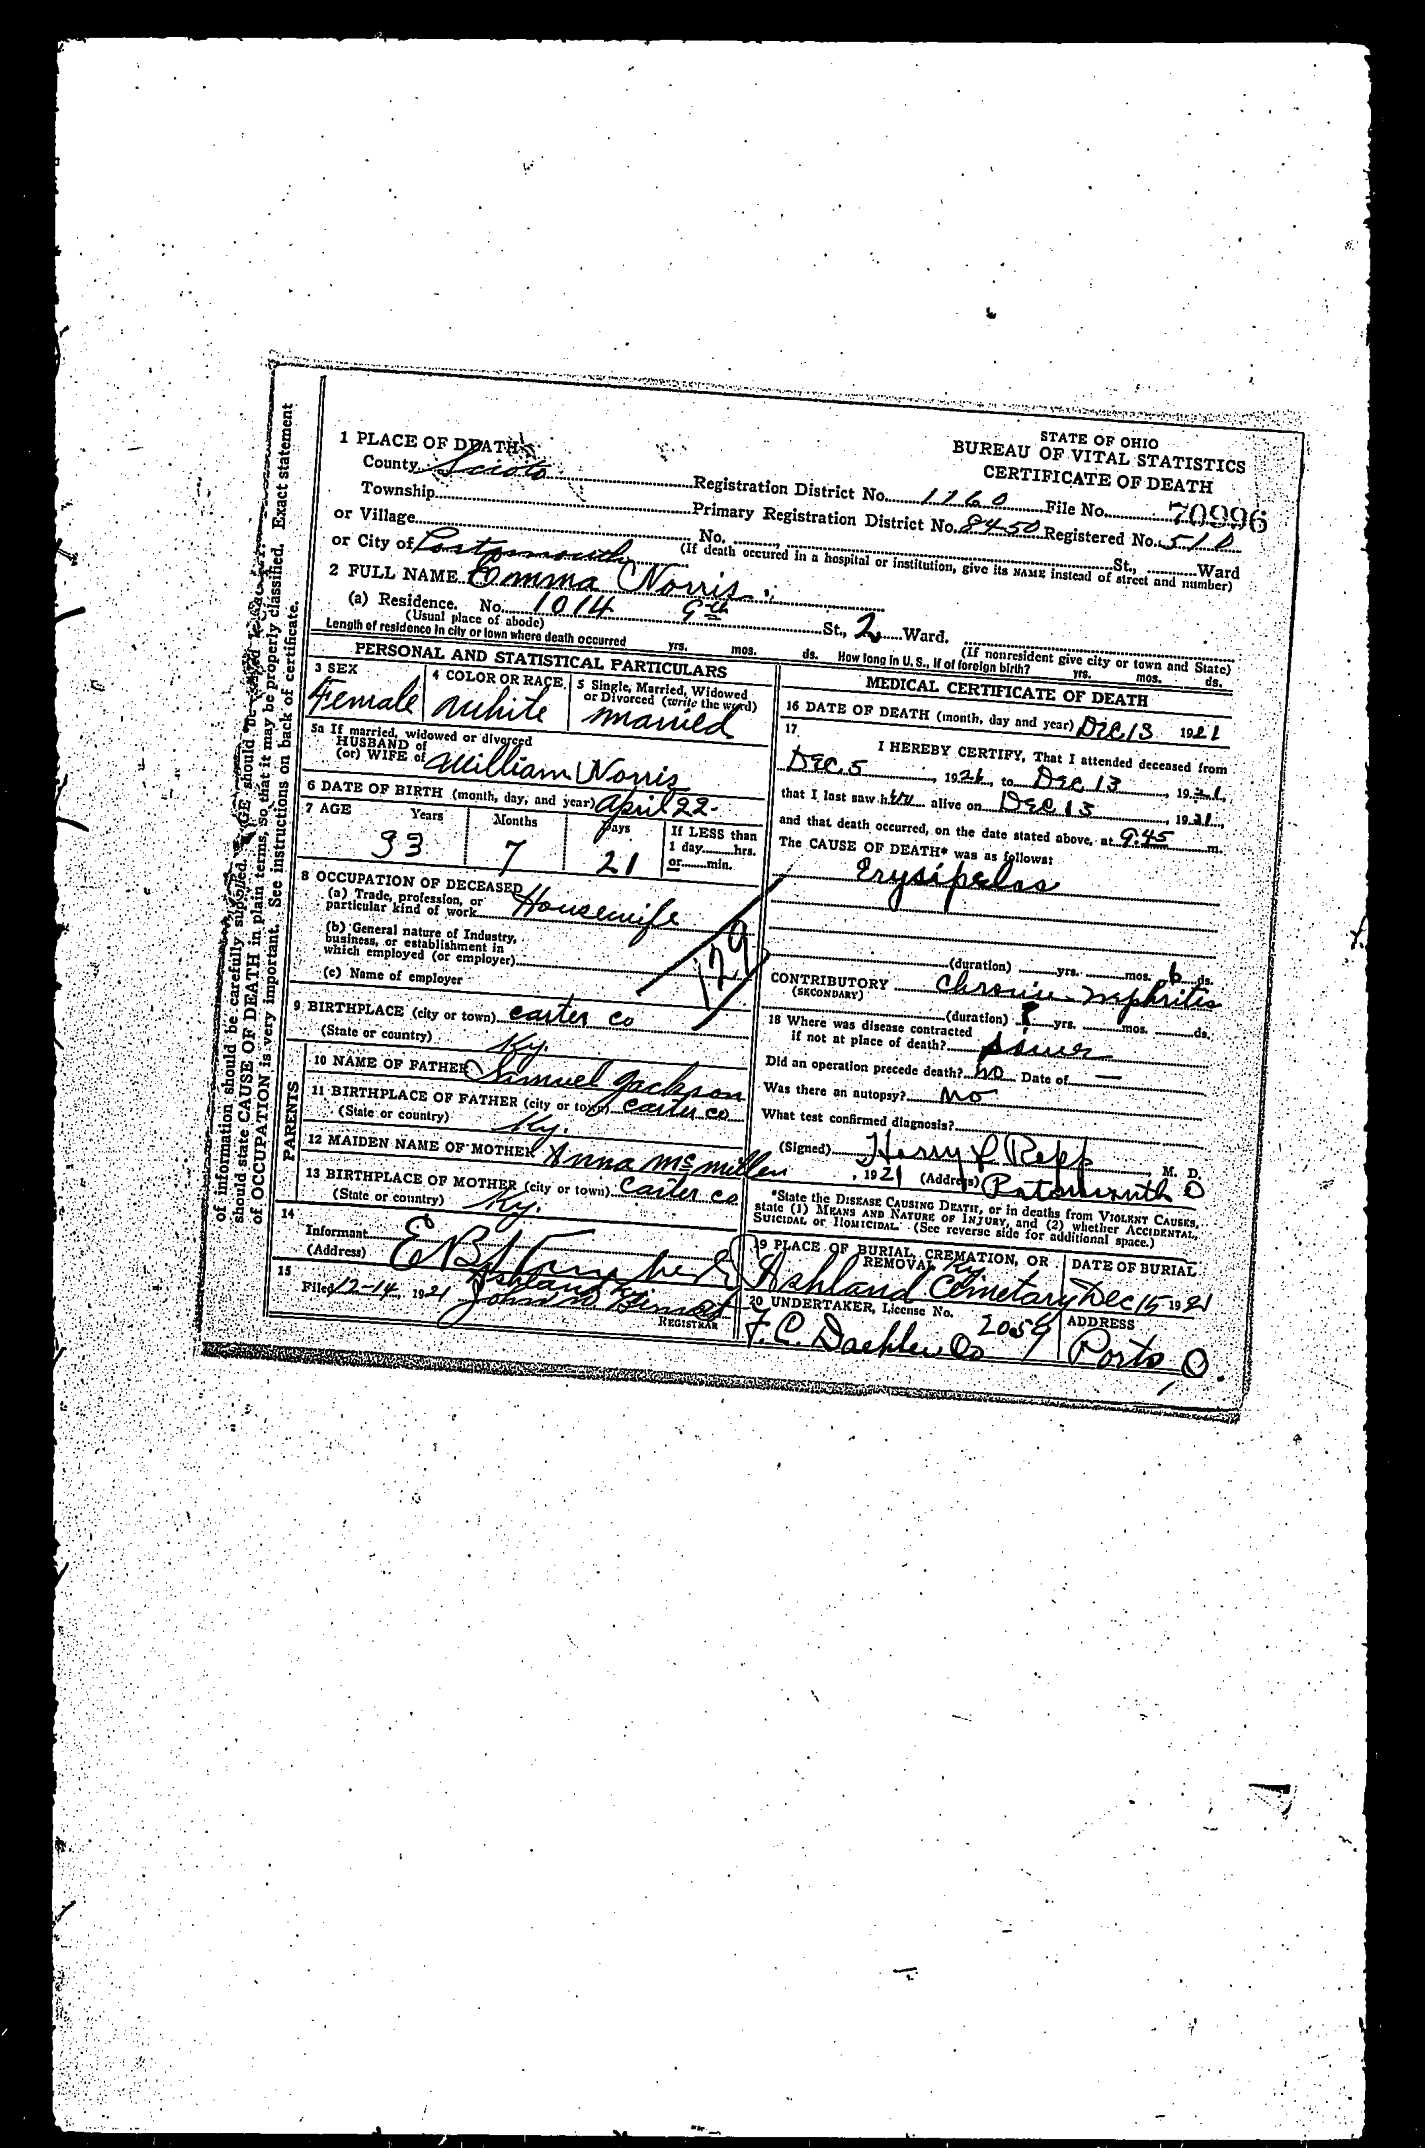 of information should be carefully supplied. AGE should be
should state CAUSE OF DEATH in plain terms, so that it may be properly classified. Exact statement
of OCCUPATION is very important. See instructions on back of certificate.
STATE OF OHIO
BUREAU OF VITAL STATISTICS
CERTIFICATE OF DEATH
1 PLACE OF DEATH
County Scioto Registration District No. 1160 File No. 70996
Township Primary Registration District No. 8450 Registered No. 510
or Village No. St., Ward
or City of Portsmouth (If death occured in a hospital or institution, give its NAME instead of street and number)
2 FULL NAME Emma Norris
(a) Residence. No. 1014 9th St., 2 Ward.
(Usual place of abode) (If nonresident give city or town and State)
Length of residence in city or town where death occurred yrs. mos. ds. How long in U. S., if of foreign birth? yrs. mos. ds.
PERSONAL AND STATISTICAL PARTICULARS
3 SEX
Female
4 COLOR OR RACE
White
5 Single, Married, Widowed
or Divorced (write the word)
married
5a If married, widowed or divorced
HUSBAND of
(or) WIFE of William Norris
6 DATE OF BIRTH (month, day, and year) April 22
7 AGE Years Months Days
33 7 21
If LESS than
1 day hrs.
or min.
8 OCCUPATION OF DECEASED
(a) Trade, profession, or
particular kind of work Housewife
(b) General nature of Industry,
business, or establishment in
which employed (or employer)
(c) Name of employer
129
9 BIRTHPLACE (city or town) Carter Co
(State or country) Ky.
PARENTS
10 NAME OF FATHER Samuel Jackson
11 BIRTHPLACE OF FATHER (city or town) Carter Co
(State or country) Ky.
12 MAIDEN NAME OF MOTHER Anna McMillen
13 BIRTHPLACE OF MOTHER (city or town) Carter Co
(State or country) Ky.
14
Informant E B
(Address) Ashland Ky
15
Filed 12-14, 1921 John
REGISTRAR
MEDICAL CERTIFICATE OF DEATH
16 DATE OF DEATH (month, day and year) Dec 13 1921
17
I HEREBY CERTIFY, That I attended deceased from
Dec. 5, 1921, to Dec 13, 1921,
that I last saw her alive on Dec 13, 1921,
and that death occurred, on the date stated above, at 9.45 m.
The CAUSE OF DEATH* was as follows:
Erysipelas
(duration) yrs. mos. 6 ds.
CONTRIBUTORY Chronic nephritis
(SECONDARY)
(duration) ? yrs. mos. ds.
18 Where was disease contracted
if not at place of death?
Did an operation precede death? no Date of —
Was there an autopsy? no
What test confirmed diagnosis?
(Signed) Harry L Repp, M. D.
, 1921 (Address) Portsmouth O
*State the DISEASE CAUSING DEATH, or in deaths from VIOLENT CAUSES,
state (1) MEANS AND NATURE OF INJURY, and (2) whether ACCIDENTAL,
SUICIDAL or HOMICIDAL. (See reverse side for additional space.)
19 PLACE OF BURIAL, CREMATION, OR
REMOVAL Ky
Ashland Cemetary
DATE OF BURIAL
Dec 15 1921
20 UNDERTAKER, License No. 2059
F. C. Daehler Co
ADDRESS
Ports, O.